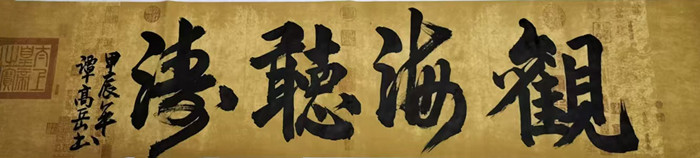 觀海聽濤
甲辰年
譚高岳书